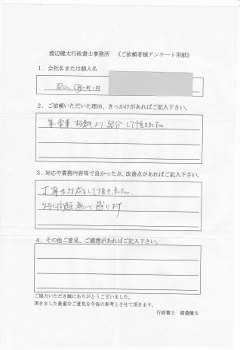 渡辺健太行政書士事務所　《ご依頼者様アンケート用紙》
1．会社名または個人名
2．ご依頼いただいた理由、きっかけがあればご記入下さい。
より紹介して頂きました。
3．対応や業務内容等で良かった点、改善点があればご記入下さい。
丁寧な対応をして頂きました。
特に問題無いと感じます。
4．その他ご意見、ご感想があればご記入下さい。
ご協力いただき誠にありがとうございました。
頂きました貴重なご意見を今後の参考とさせて頂きます。
行政書士　渡邉健太